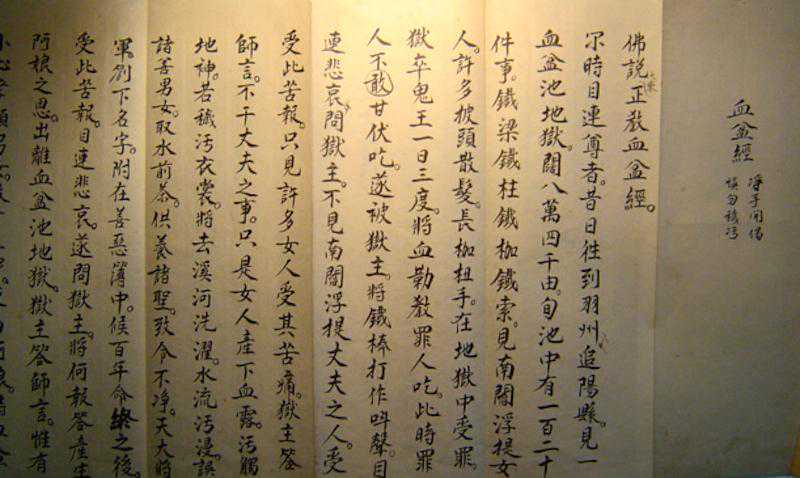 血盆經
淨手開偈
慎勿穢污
佛說正教血盆經。
尒時目連尊者。昔日徃到羽州追陽縣。見一
血盆池地獄。闊八萬四千由。旬池中有一百二十
件事。鐵梁鐵柱鐵枷鐵索。見南閻浮提女
人。許多披頭散髮。長枷杻手。在地獄中受罪。
獄卒鬼王一日三度。將血勒教罪人吃。此時罪
人不敢甘伏吃。遂被獄主。將鐵棒打作呌聲。目
連悲哀。問獄主。不見南閻浮提丈夫之人。受
受此苦報。只見許多女人受其苦痛。獄主答
師言。不干丈夫之事。只是女人產下血露。污觸
地神。若穢污衣裳。將去溪河洗濯。水流污漫。誤
諸善男女。取水煎茶。供養諸聖。致令不淨。天大將
軍劄下名字。附在善惡簿中。候百年命終之後。
受此苦報。目連悲哀。遂問獄主。將何報答產生
阿娘之恩。出離血盆池地獄。獄主答師言。惟有